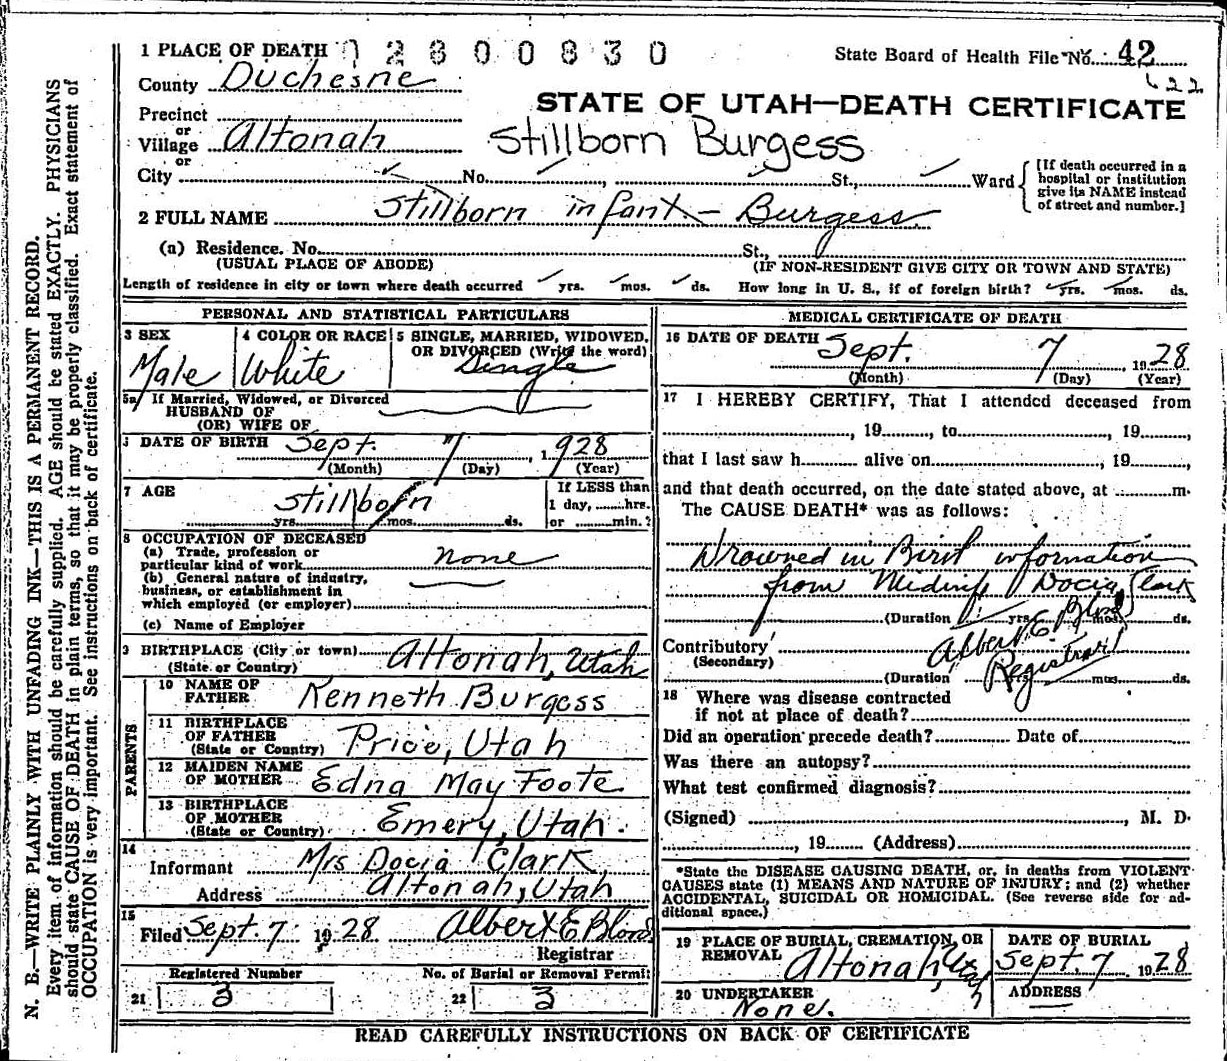 N. B.—WRITE PLAINLY WITH UNFADING INK—THIS IS A PERMANENT RECORD.
Every item of information should be carefully supplied. AGE should be stated EXACTLY. PHYSICIANS
should state CAUSE OF DEATH in plain terms, so that it may be properly classified. Exact statement of
OCCUPATION is very important. See instructions on back of certificate.
1 PLACE OF DEATH 2800830 State Board of Health File No. 42
County Duchesne 622
Precinct
or
Village Altonah
STATE OF UTAH—DEATH CERTIFICATE
Stillborn Burgess
or
City No. , St., Ward
[If death occurred in a
hospital or institution
give its NAME instead
of street and number.]
2 FULL NAME Stillborn infant - Burgess
(a) Residence. No. St.,
(USUAL PLACE OF ABODE) (IF NON-RESIDENT GIVE CITY OR TOWN AND STATE)
Length of residence in city or town where death occurred yrs. mos. ds. How long in U. S., if of foreign birth? yrs. mos. ds.
PERSONAL AND STATISTICAL PARTICULARS
3 SEX
Male
4 COLOR OR RACE
White
5 SINGLE, MARRIED, WIDOWED,
OR DIVORCED (Write the word)
Single
5a If Married, Widowed, or Divorced
HUSBAND OF
(OR) WIFE OF
DATE OF BIRTH Sept. 7, 1928
(Month) (Day) (Year)
7 AGE stillborn
yrs. mos. ds.
If LESS than
1 day, hrs.
or min.?
8 OCCUPATION OF DECEASED
(a) Trade, profession or
particular kind of work none
(b) General nature of industry,
business, or establishment in
which employed (or employer)
(c) Name of Employer
9 BIRTHPLACE (City or town) Altonah, Utah
(State or Country)
PARENTS
10 NAME OF
FATHER Kenneth Burgess
11 BIRTHPLACE
OF FATHER
(State or Country) Price, Utah
12 MAIDEN NAME
OF MOTHER Edna May Foote
13 BIRTHPLACE
OF MOTHER
(State or Country) Emery, Utah.
14
Informant Mrs Docia Clark
Address Altonah, Utah
15
Filed Sept. 7 1928 Albert E Blood
Registrar
Registered Number
21 3
No. of Burial or Removal Permit
22 3
MEDICAL CERTIFICATE OF DEATH
16 DATE OF DEATH Sept. 7, 1928
(Month) (Day) (Year)
17 I HEREBY CERTIFY, That I attended deceased from
, 19 , to , 19 ,
that I last saw h alive on , 19 ,
and that death occurred, on the date stated above, at m.
The CAUSE DEATH* was as follows:
Drowned in Birth information
from Midwife Docia Clark
(Duration yrs. mos. ds.
Contributory Albert E. Blood
(Secondary) Registrar
(Duration yrs. mos. ds.
18 Where was disease contracted
if not at place of death?
Did an operation precede death? Date of
Was there an autopsy?
What test confirmed diagnosis?
(Signed) , M. D.
, 19 (Address)
*State the DISEASE CAUSING DEATH, or, in deaths from VIOLENT
CAUSES state (1) MEANS AND NATURE OF INJURY; and (2) whether
ACCIDENTAL, SUICIDAL OR HOMICIDAL. (See reverse side for ad-
ditional space.)
19 PLACE OF BURIAL, CREMATION, OR
REMOVAL Altonah, Utah
DATE OF BURIAL
Sept. 7, 1928
20 UNDERTAKER
None.
ADDRESS
READ CAREFULLY INSTRUCTIONS ON BACK OF CERTIFICATE